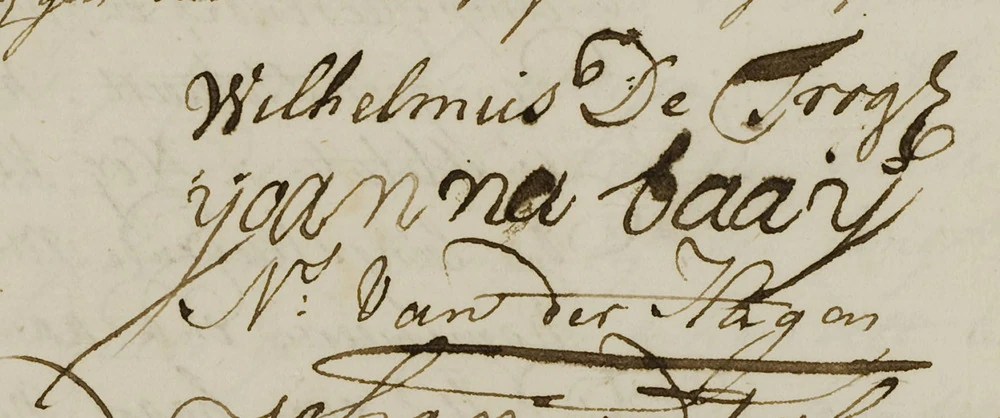 Wilhelmus De Trogh
yoanna baaij
Ns: Van der Hagen